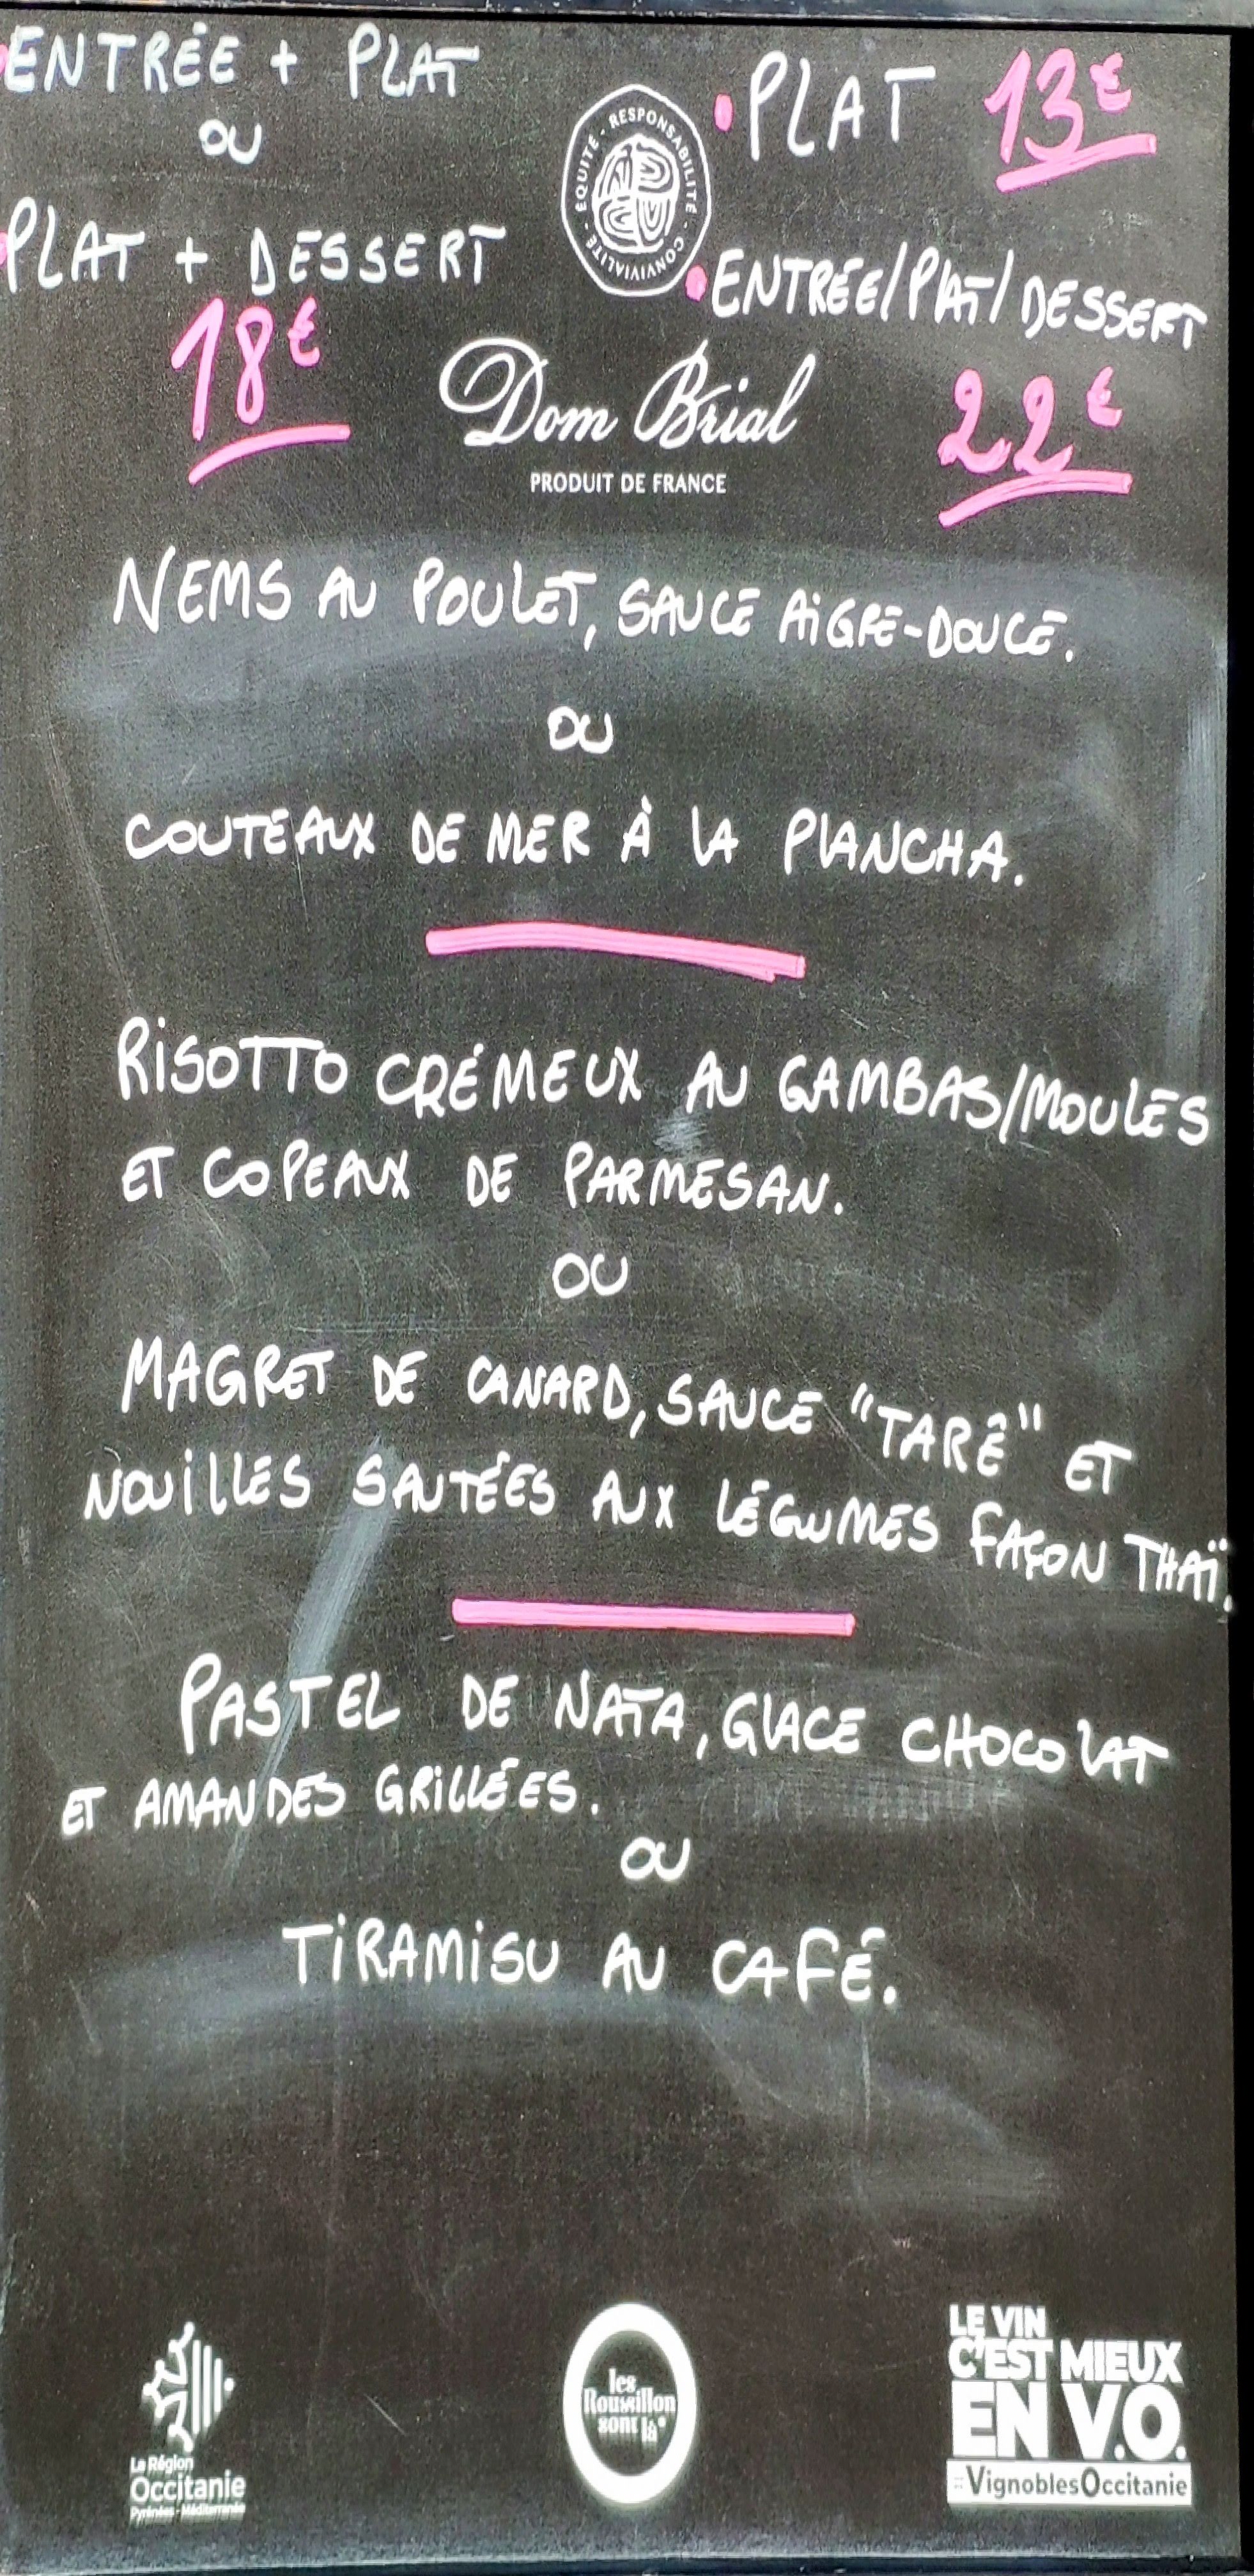 ENTRÉE + PLAT
OU
PLAT + DESSERT
18€
ÉQUITÉ - RESPONSABILITÉ - CONVIVIALITÉ -
Dom Brial
PRODUIT DE FRANCE
PLAT 13€
ENTRÉE/PLAT/DESSERT
22€
NEMS AU POULET, SAUCE AIGRE-DOUCE.
OU
COUTEAUX DE MER À LA PLANCHA.
RISOTTO CRÉMEUX AU GAMBAS/MOULES
ET COPEAUX DE PARMESAN.
OU
MAGRET DE CANARD, SAUCE "TARÊ" ET
NOUILLES SAUTÉES AUX LÉGUMES FAÇON THAÏ.
PASTEL DE NATA, GLACE CHOCOLAT
ET AMANDES GRILLÉES.
OU
TIRAMISU AU CAFÉ.
La Région
Occitanie
Pyrénées - Méditerranée
les
Roussillon
sont là
LE VIN
C'EST MIEUX
EN V.O.
#VignoblesOccitanie